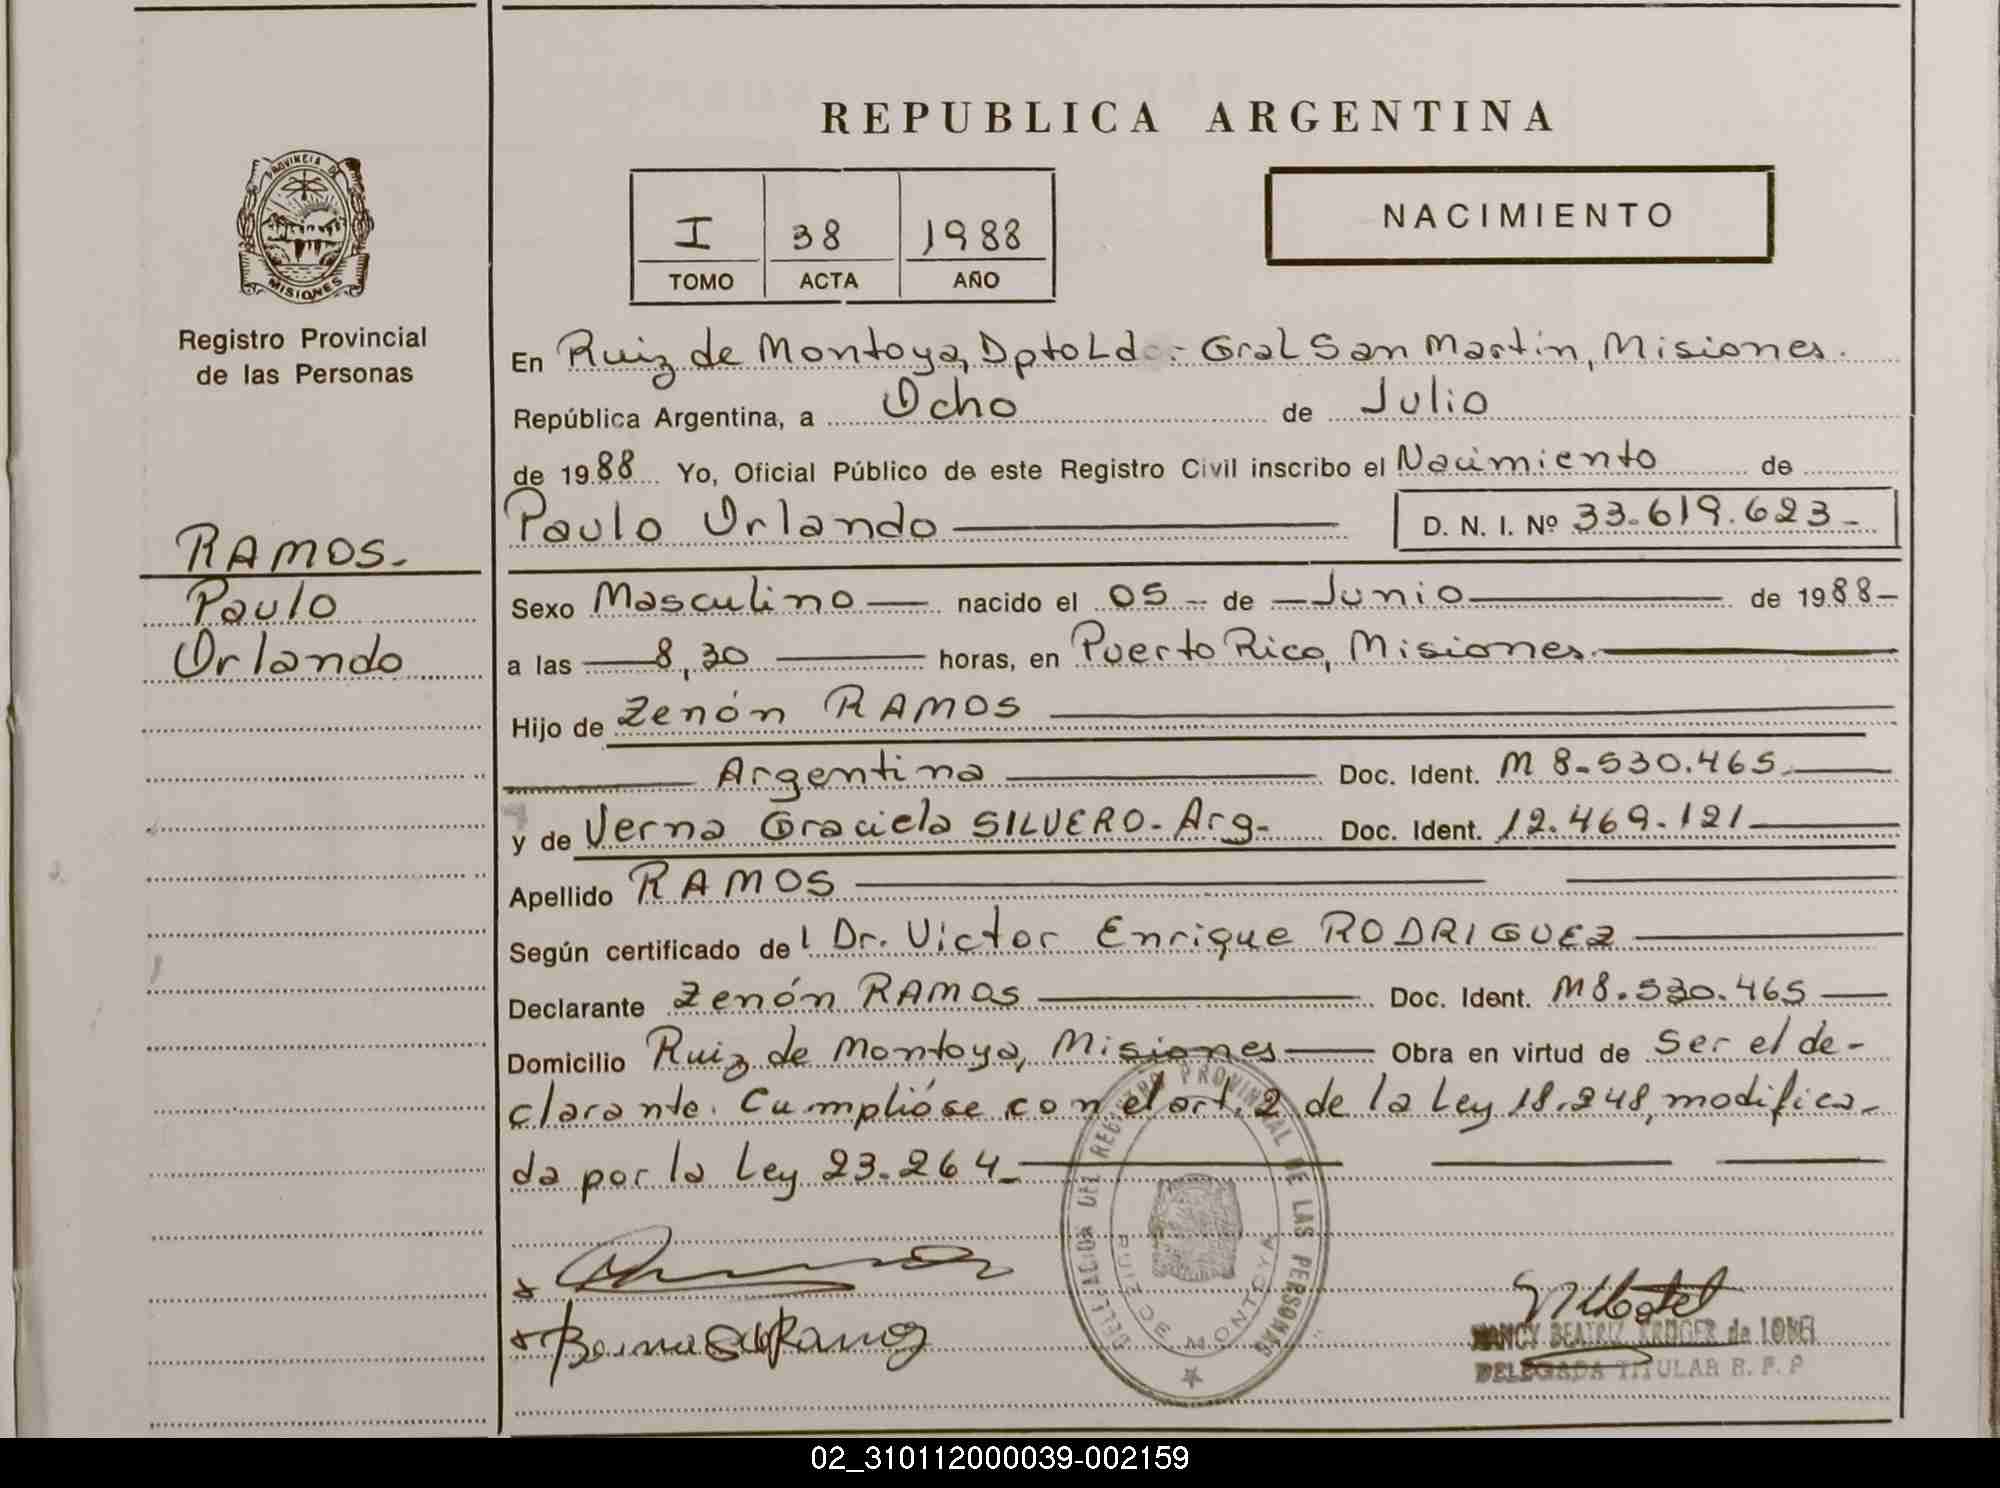 REPUBLICA ARGENTINA
PROVINCIA DE
MISIONES
Registro Provincial
de las Personas
I 38 1988
TOMO ACTA AÑO
NACIMIENTO
En Ruiz de Montoya, Dpto Ld : Gral San Martín, Misiones.
República Argentina, a Ocho de Julio
de 1988 Yo, Oficial Público de este Registro Civil inscribo el Nacimiento de
Paulo Orlando D. N. I. Nº 33.619.623-
RAMOS-
Paulo
Orlando
Sexo Masculino nacido el 05 - de Junio de 1988-
a las 8,30 horas, en Puerto Rico, Misiones
Hijo de Zenón RAMOS
Argentina Doc. Ident. M 8.530.465
y de Verna Graciela SILVERO- Arg- Doc. Ident. 12.469.121
Apellido RAMOS
Según certificado de l Dr. Victor Enrique RODRIGUEZ
Declarante Zenón RAMOS Doc. Ident. M8.530.465
Domicilio Ruiz de Montoya, Misiones Obra en virtud de Ser el de-
clarante. Cumplióse con el art. 2 de la Ley 18.248, modifica-
da por la Ley 23.264
DELEGACION DEL REGISTRO PROVINCIAL DE LAS PERSONAS
RUIZ DE MONTOYA
NANCY BEATRIZ KRUGER de
DELEGADA TITULAR R. P. P
02_310112000039-002159